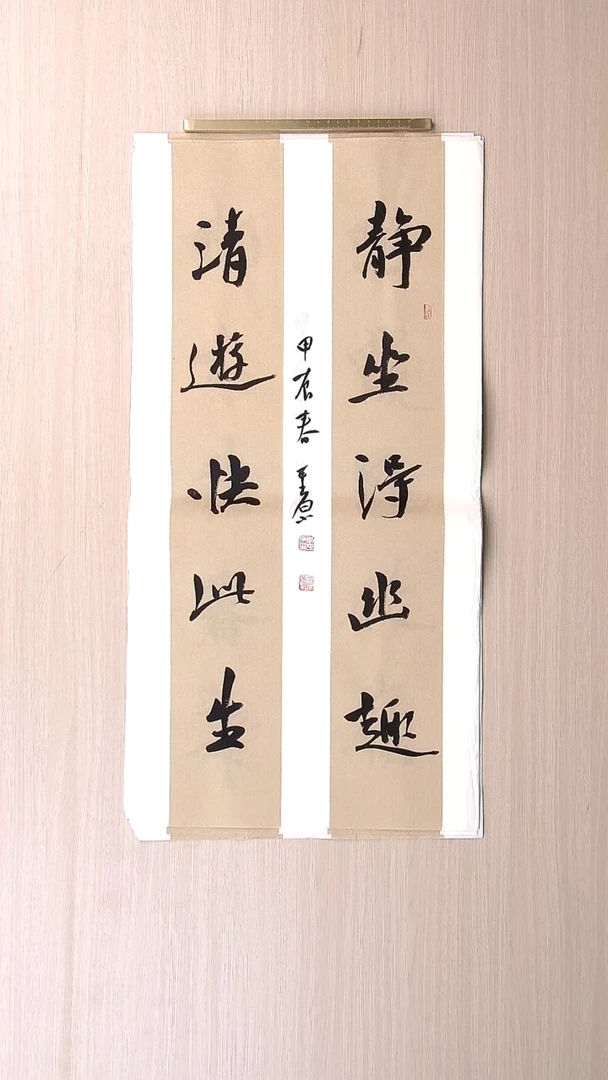 静坐得幽趣
清遊快此生
甲辰春